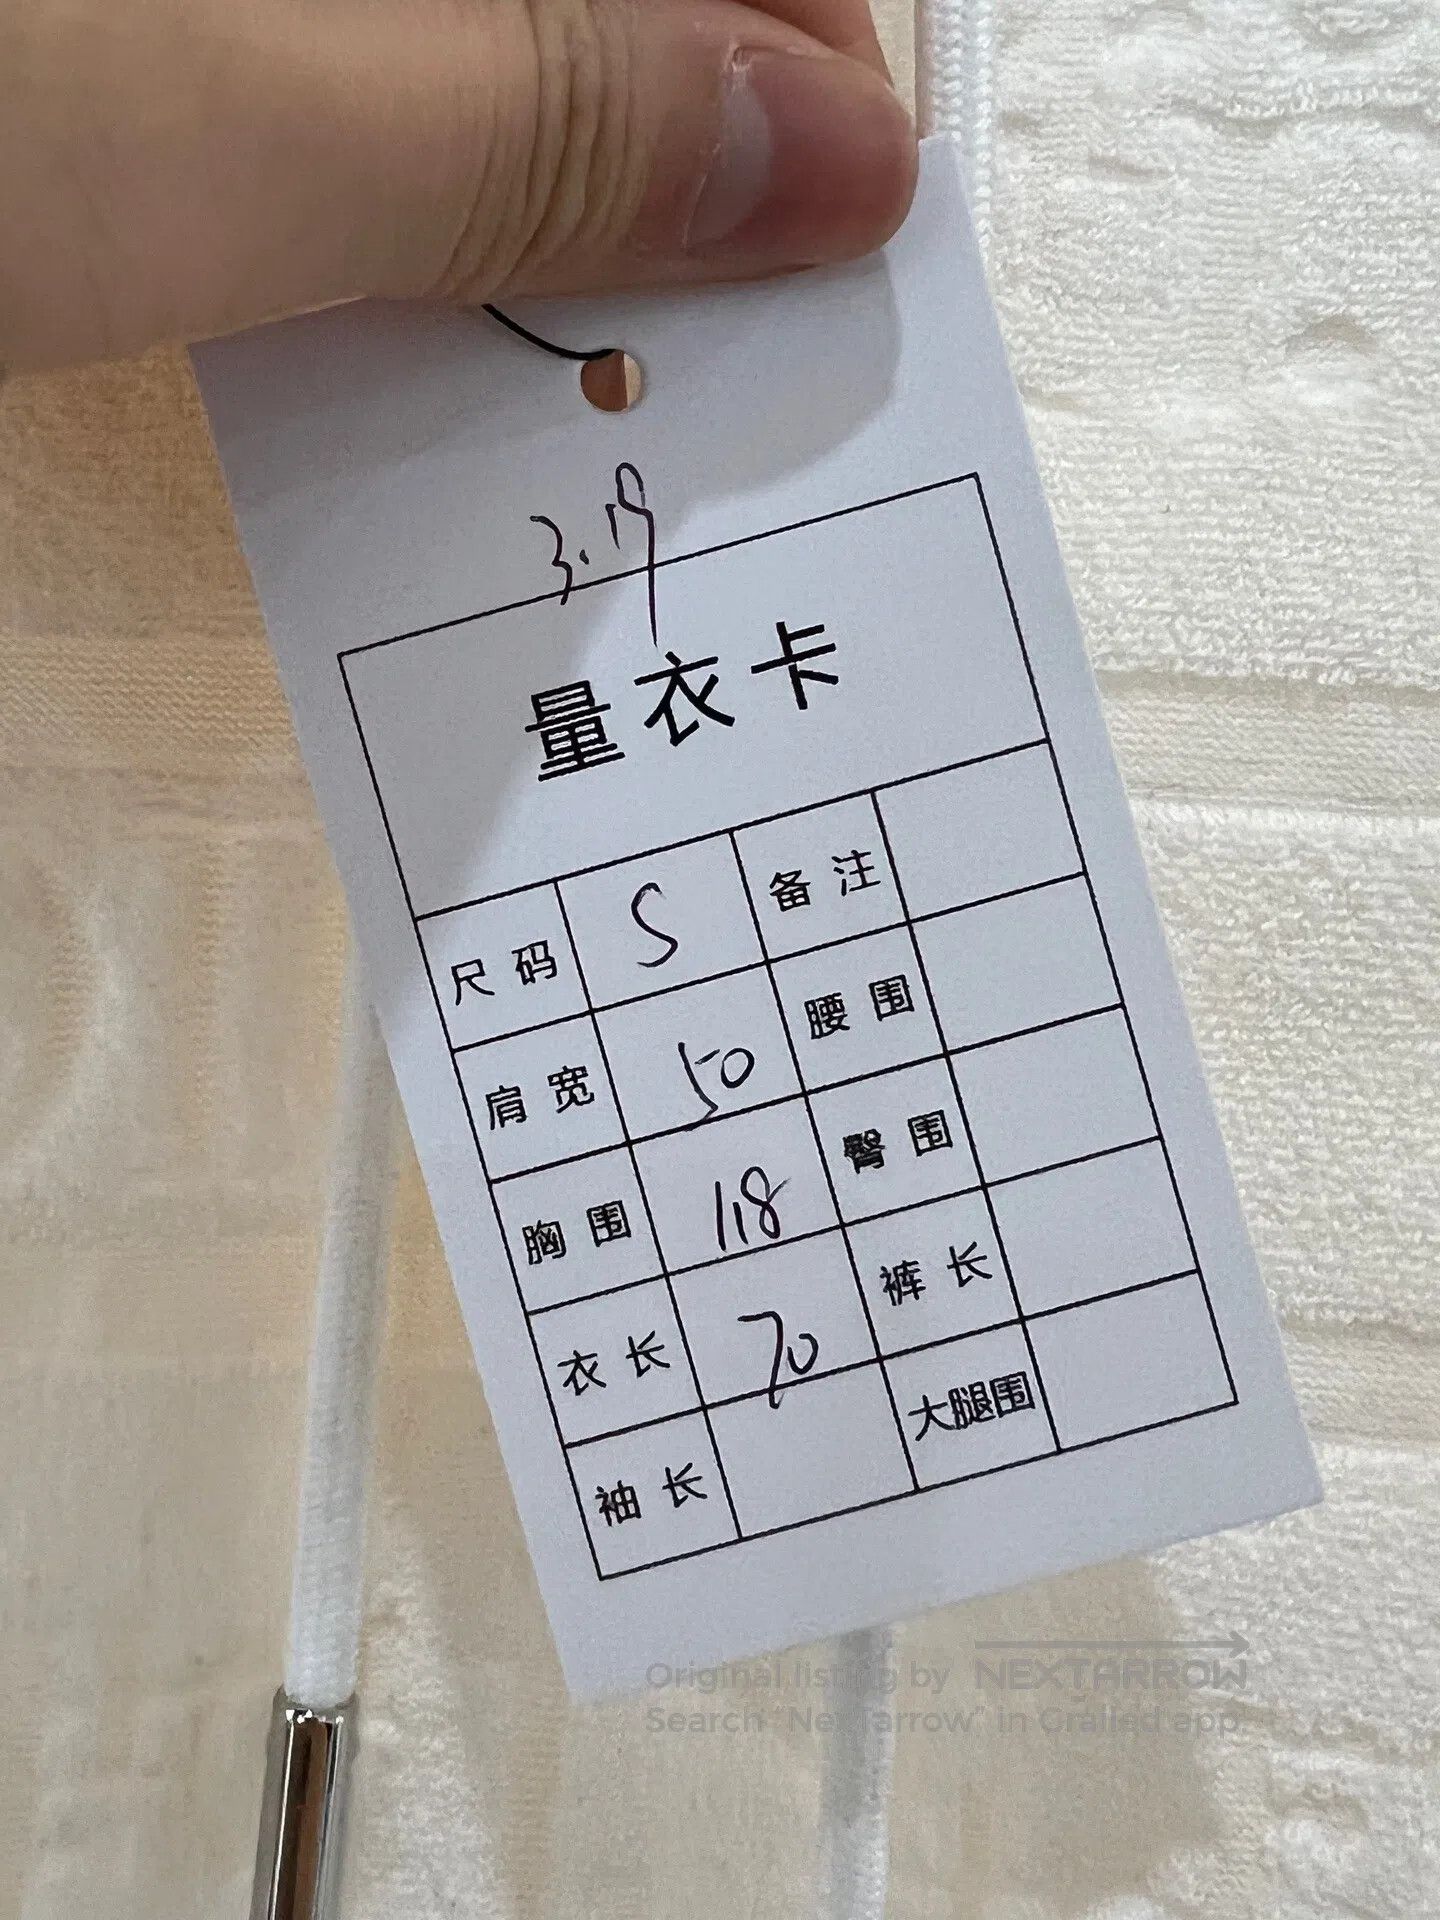 3.19
量衣卡
尺码 S 备注
肩宽 50 腰围
胸围 118 臀围
衣长 70 裤长
袖长 大腿围
Original listing by NEXTARROW
Search "NexTarrow" in Grailed app